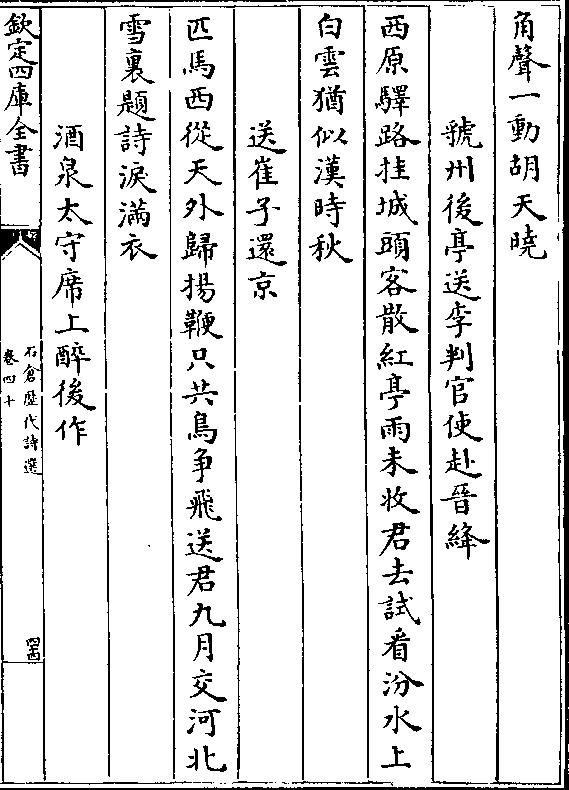 角聲一動胡天曉
虢州後亭送李判官使赴晉絳
西原驛路挂城頭客散紅亭雨未收君去試看汾水上
白雲猶似漢時秋
送崔子還京
匹馬西從天外歸揚鞭只共鳥争飛送君九月交河北
雪裏題詩淚滿衣
酒泉太守席上醉後作
欽定四庫全書
石倉歴代詩選
卷四十
四十四